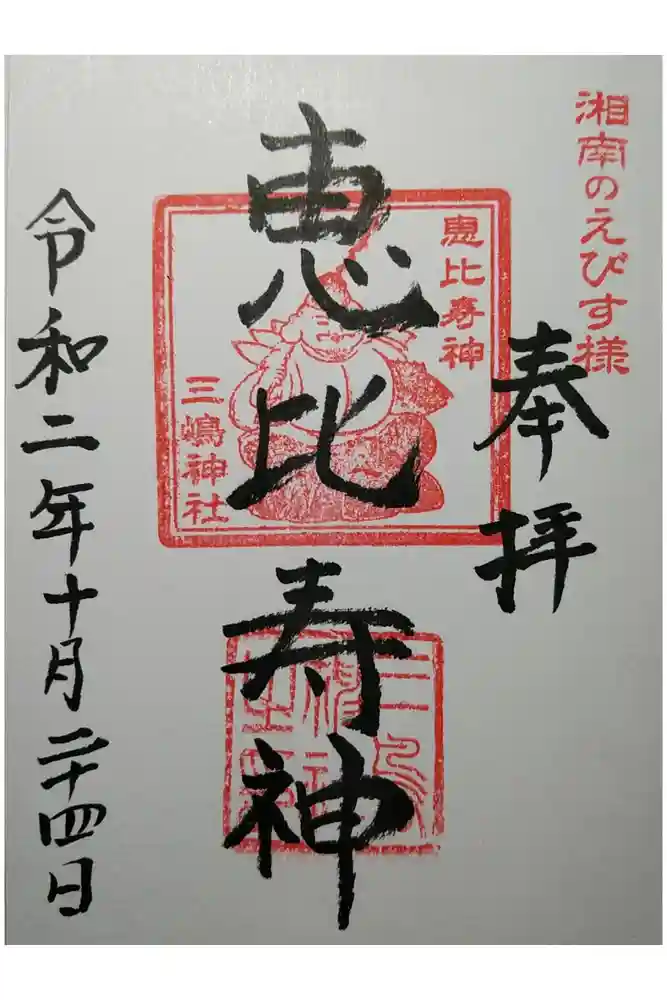 湘南のえびす様
奉拝
恵比寿神
恵比寿神
三嶋神社
令和二年十月二十四日